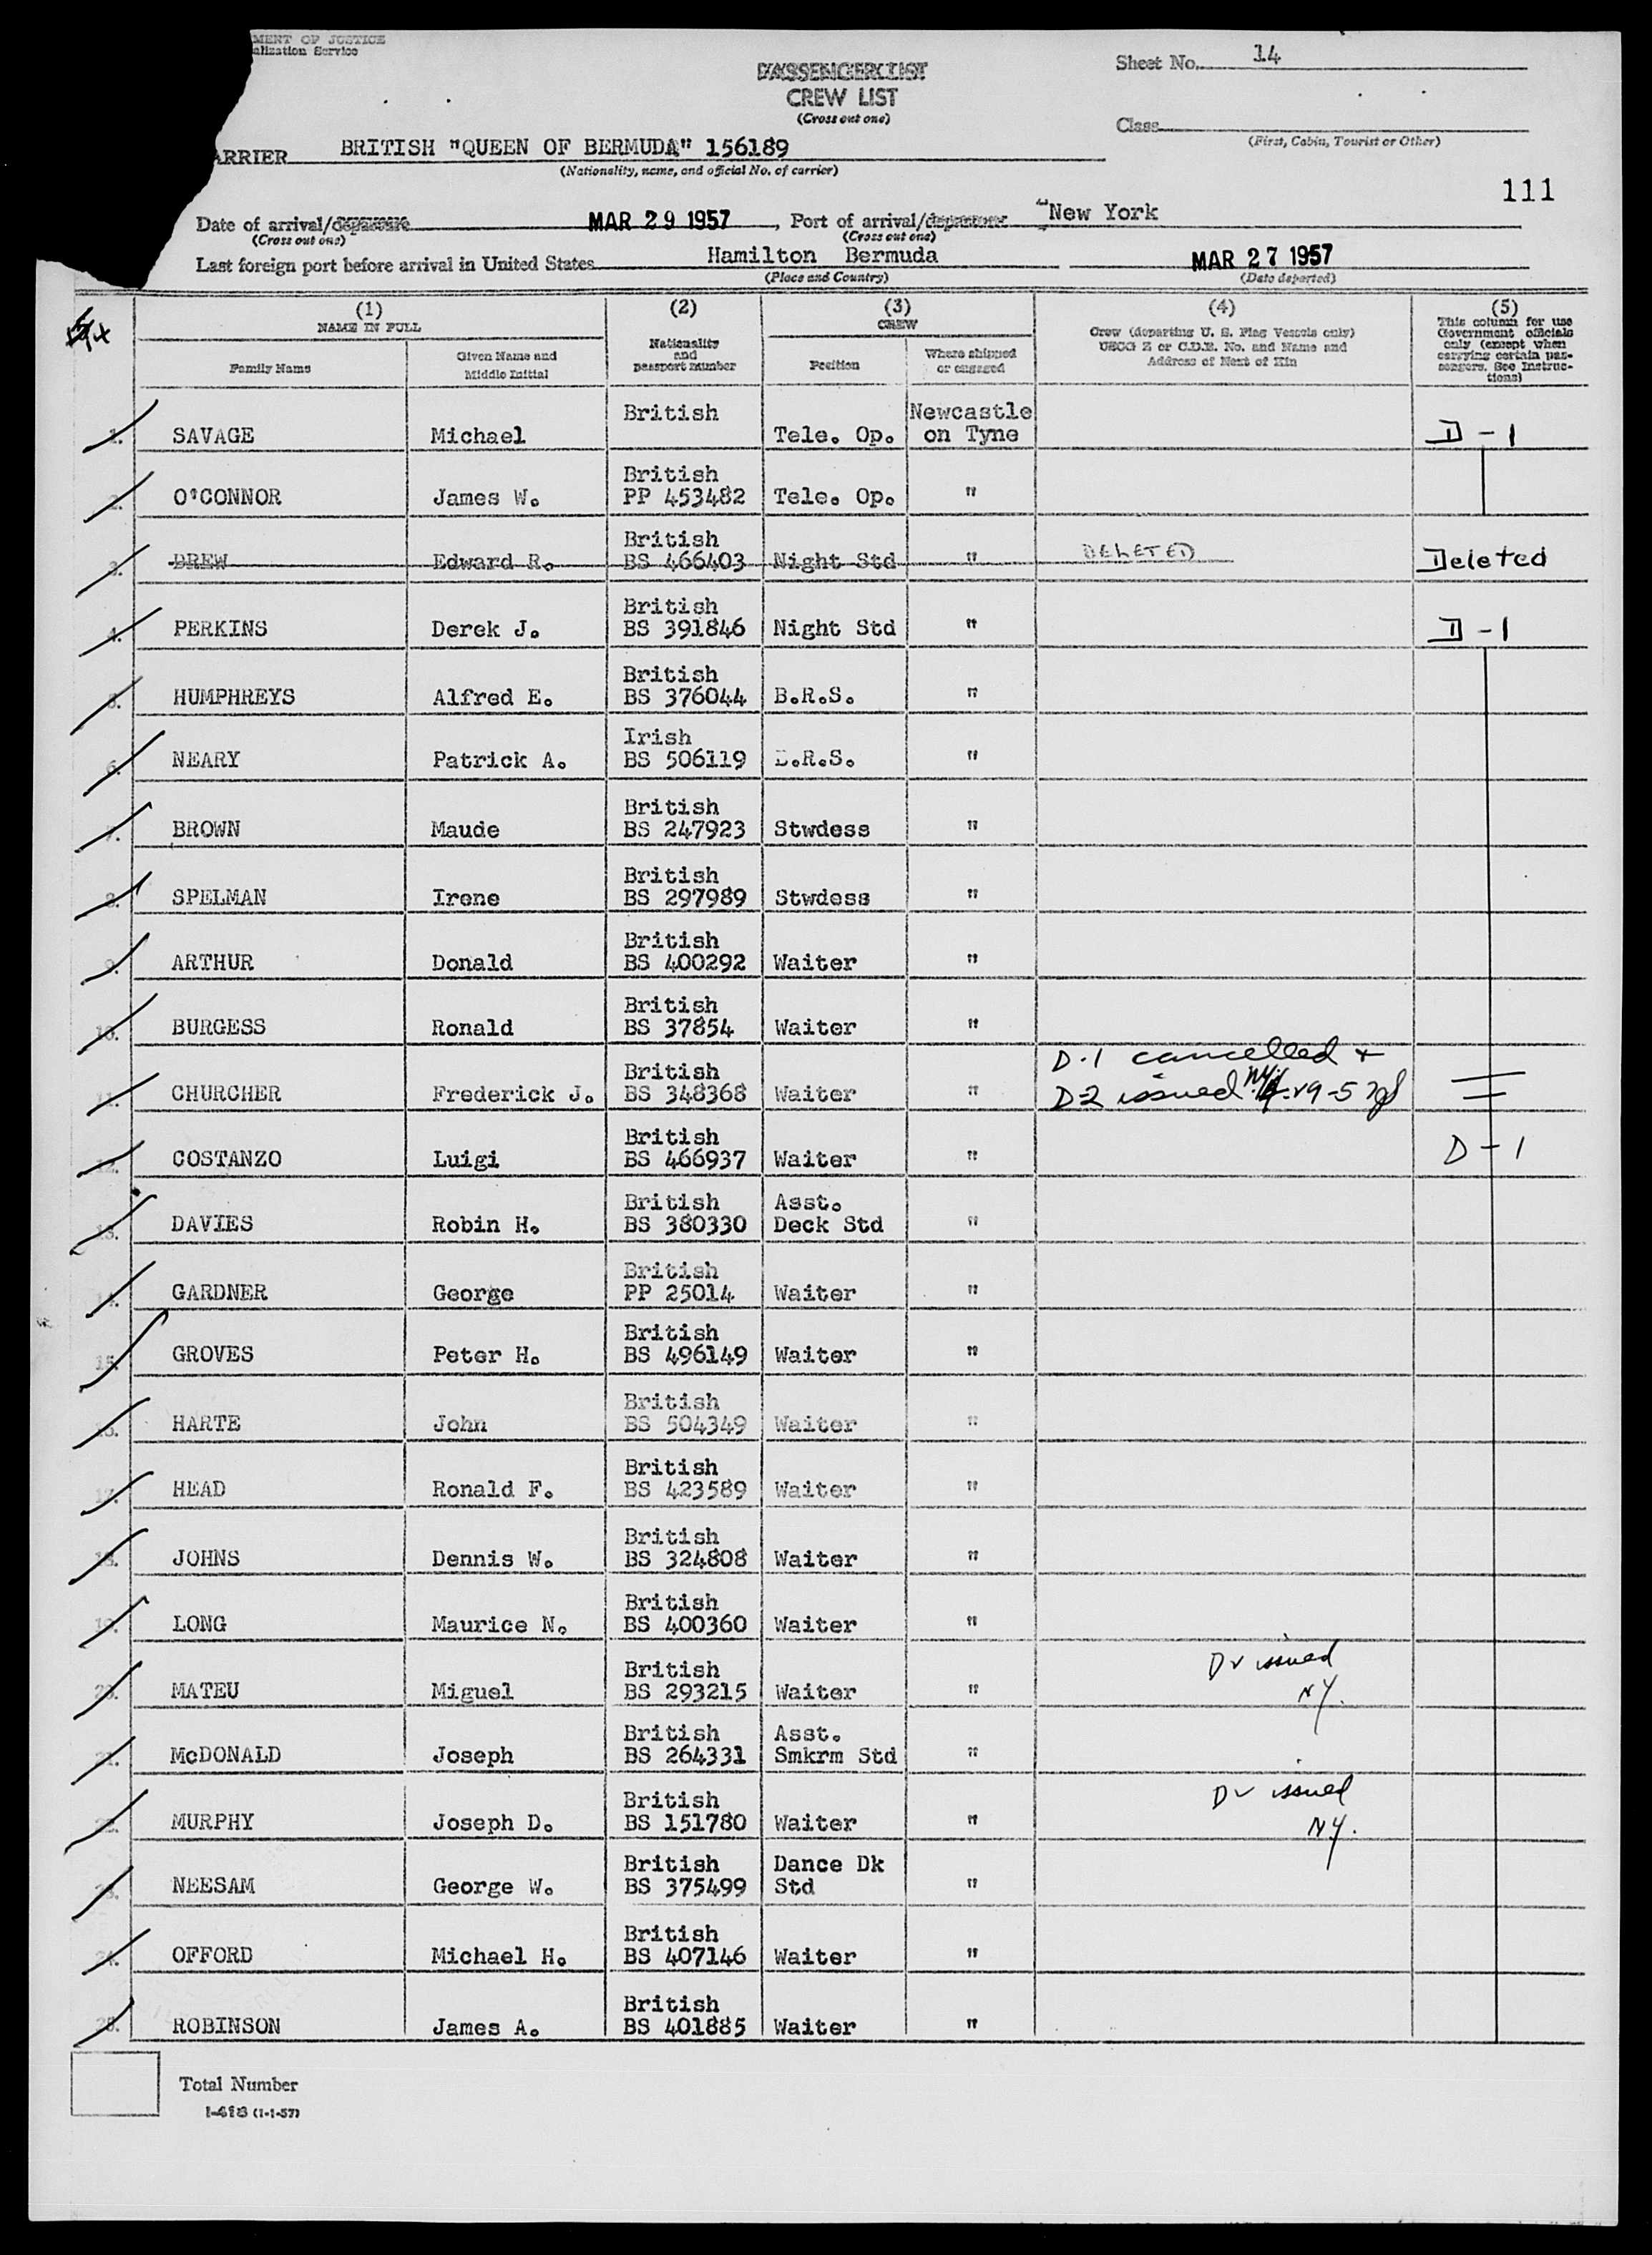 MENT OF JUSTICE
alization Service
PASSENGER LIST
CREW LIST
(Cross out one)
Sheet No. 14
Class
(First, Cabin, Tourist or Other)
ARRIER BRITISH "QUEEN OF BERMUDA" 156189
(Nationality, name, and official No. of carrier)
111
Date of arrival/departure MAR 29 1957, Port of arrival/departure New York
(Cross out one) (Cross out one)
Last foreign port before arrival in United States Hamilton Bermuda MAR 27 1957
(Place and Country) (Date departed)
(1) (2) (3) (4) (5)
NAME IN FULL
Family Name
Given Name and Middle Initial
Nationality and passport number
CREW
Position
Where shipped or engaged
Crew (departing U. S. Flag Vessels only)
USCG Z or C.D.B. No. and Name and
Address of Next of Kin
This column for use
Government officials
only (except when
carrying certain pas-
sengers. See Instruc-
tions)
1. SAVAGE Michael British Tele. Op. Newcastle on Tyne D-1
2. O'CONNOR James W. British PP 453482 Tele. Op. "
3. DREW Edward R. British BS 466403 Night Std " DELETED Deleted
4. PERKINS Derek J. British BS 391846 Night Std " D-1
5. HUMPHREYS Alfred E. British BS 376044 B.R.S. "
6. NEARY Patrick A. Irish BS 506119 B.R.S. "
7. BROWN Maude British BS 247923 Stwdess "
8. SPELMAN Irene British BS 297989 Stwdess "
9. ARTHUR Donald British BS 400292 Waiter "
10. BURGESS Ronald British BS 37854 Waiter "
11. CHURCHER Frederick J. British BS 348368 Waiter " D-1 cancelled + D-2 issued NY
12. COSTANZO Luigi British BS 466937 Waiter " D-1
13. DAVIES Robin H. British BS 380330 Asst. Deck Std "
14. GARDNER George British PP 25014 Waiter "
15. GROVES Peter H. British BS 496149 Waiter "
16. HARTE John British BS 504349 Waiter "
17. HEAD Ronald F. British BS 423589 Waiter "
18. JOHNS Dennis W. British BS 324808 Waiter "
19. LONG Maurice N. British BS 400360 Waiter "
20. MATEU Miguel British BS 293215 Waiter " Dv issued NY.
21. McDONALD Joseph British BS 264331 Asst. Smkrm Std "
22. MURPHY Joseph D. British BS 151780 Waiter " Dv issued NY.
23. NEESAM George W. British BS 375499 Dance Dk Std "
24. OFFORD Michael H. British BS 407146 Waiter "
25. ROBINSON James A. British BS 401885 Waiter "
Total Number
I-418 (1-1-57)